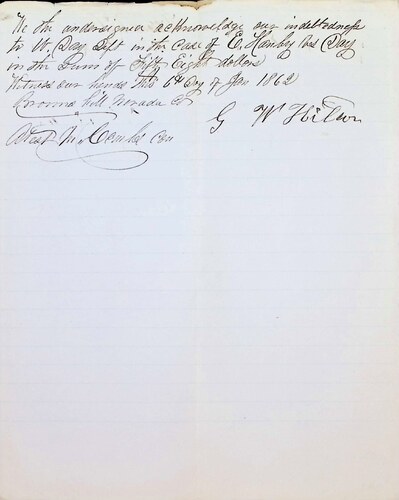 We the undersigned acknowledge our indebtedness
to W. Day Dept in the Case of E. Hamby vs Day
in the Sum of Fifty Eight dollars
Witness our hands this 6th Day of Jan 1862
Hill Nevada Co
G W